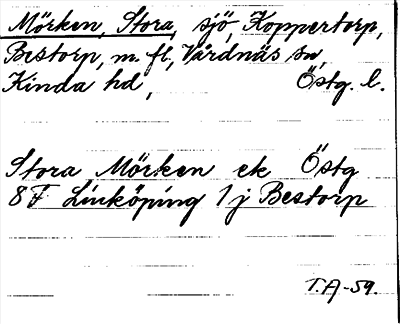 Mörken, Stora, sjö, Koppertorp,
Bestorp, m. fl., Vårdnäs sn,
Kinda hd, Östg. l.
Stora Mörken ek Östg
8 F Linköping 1 j Bestorp
T.A-59.